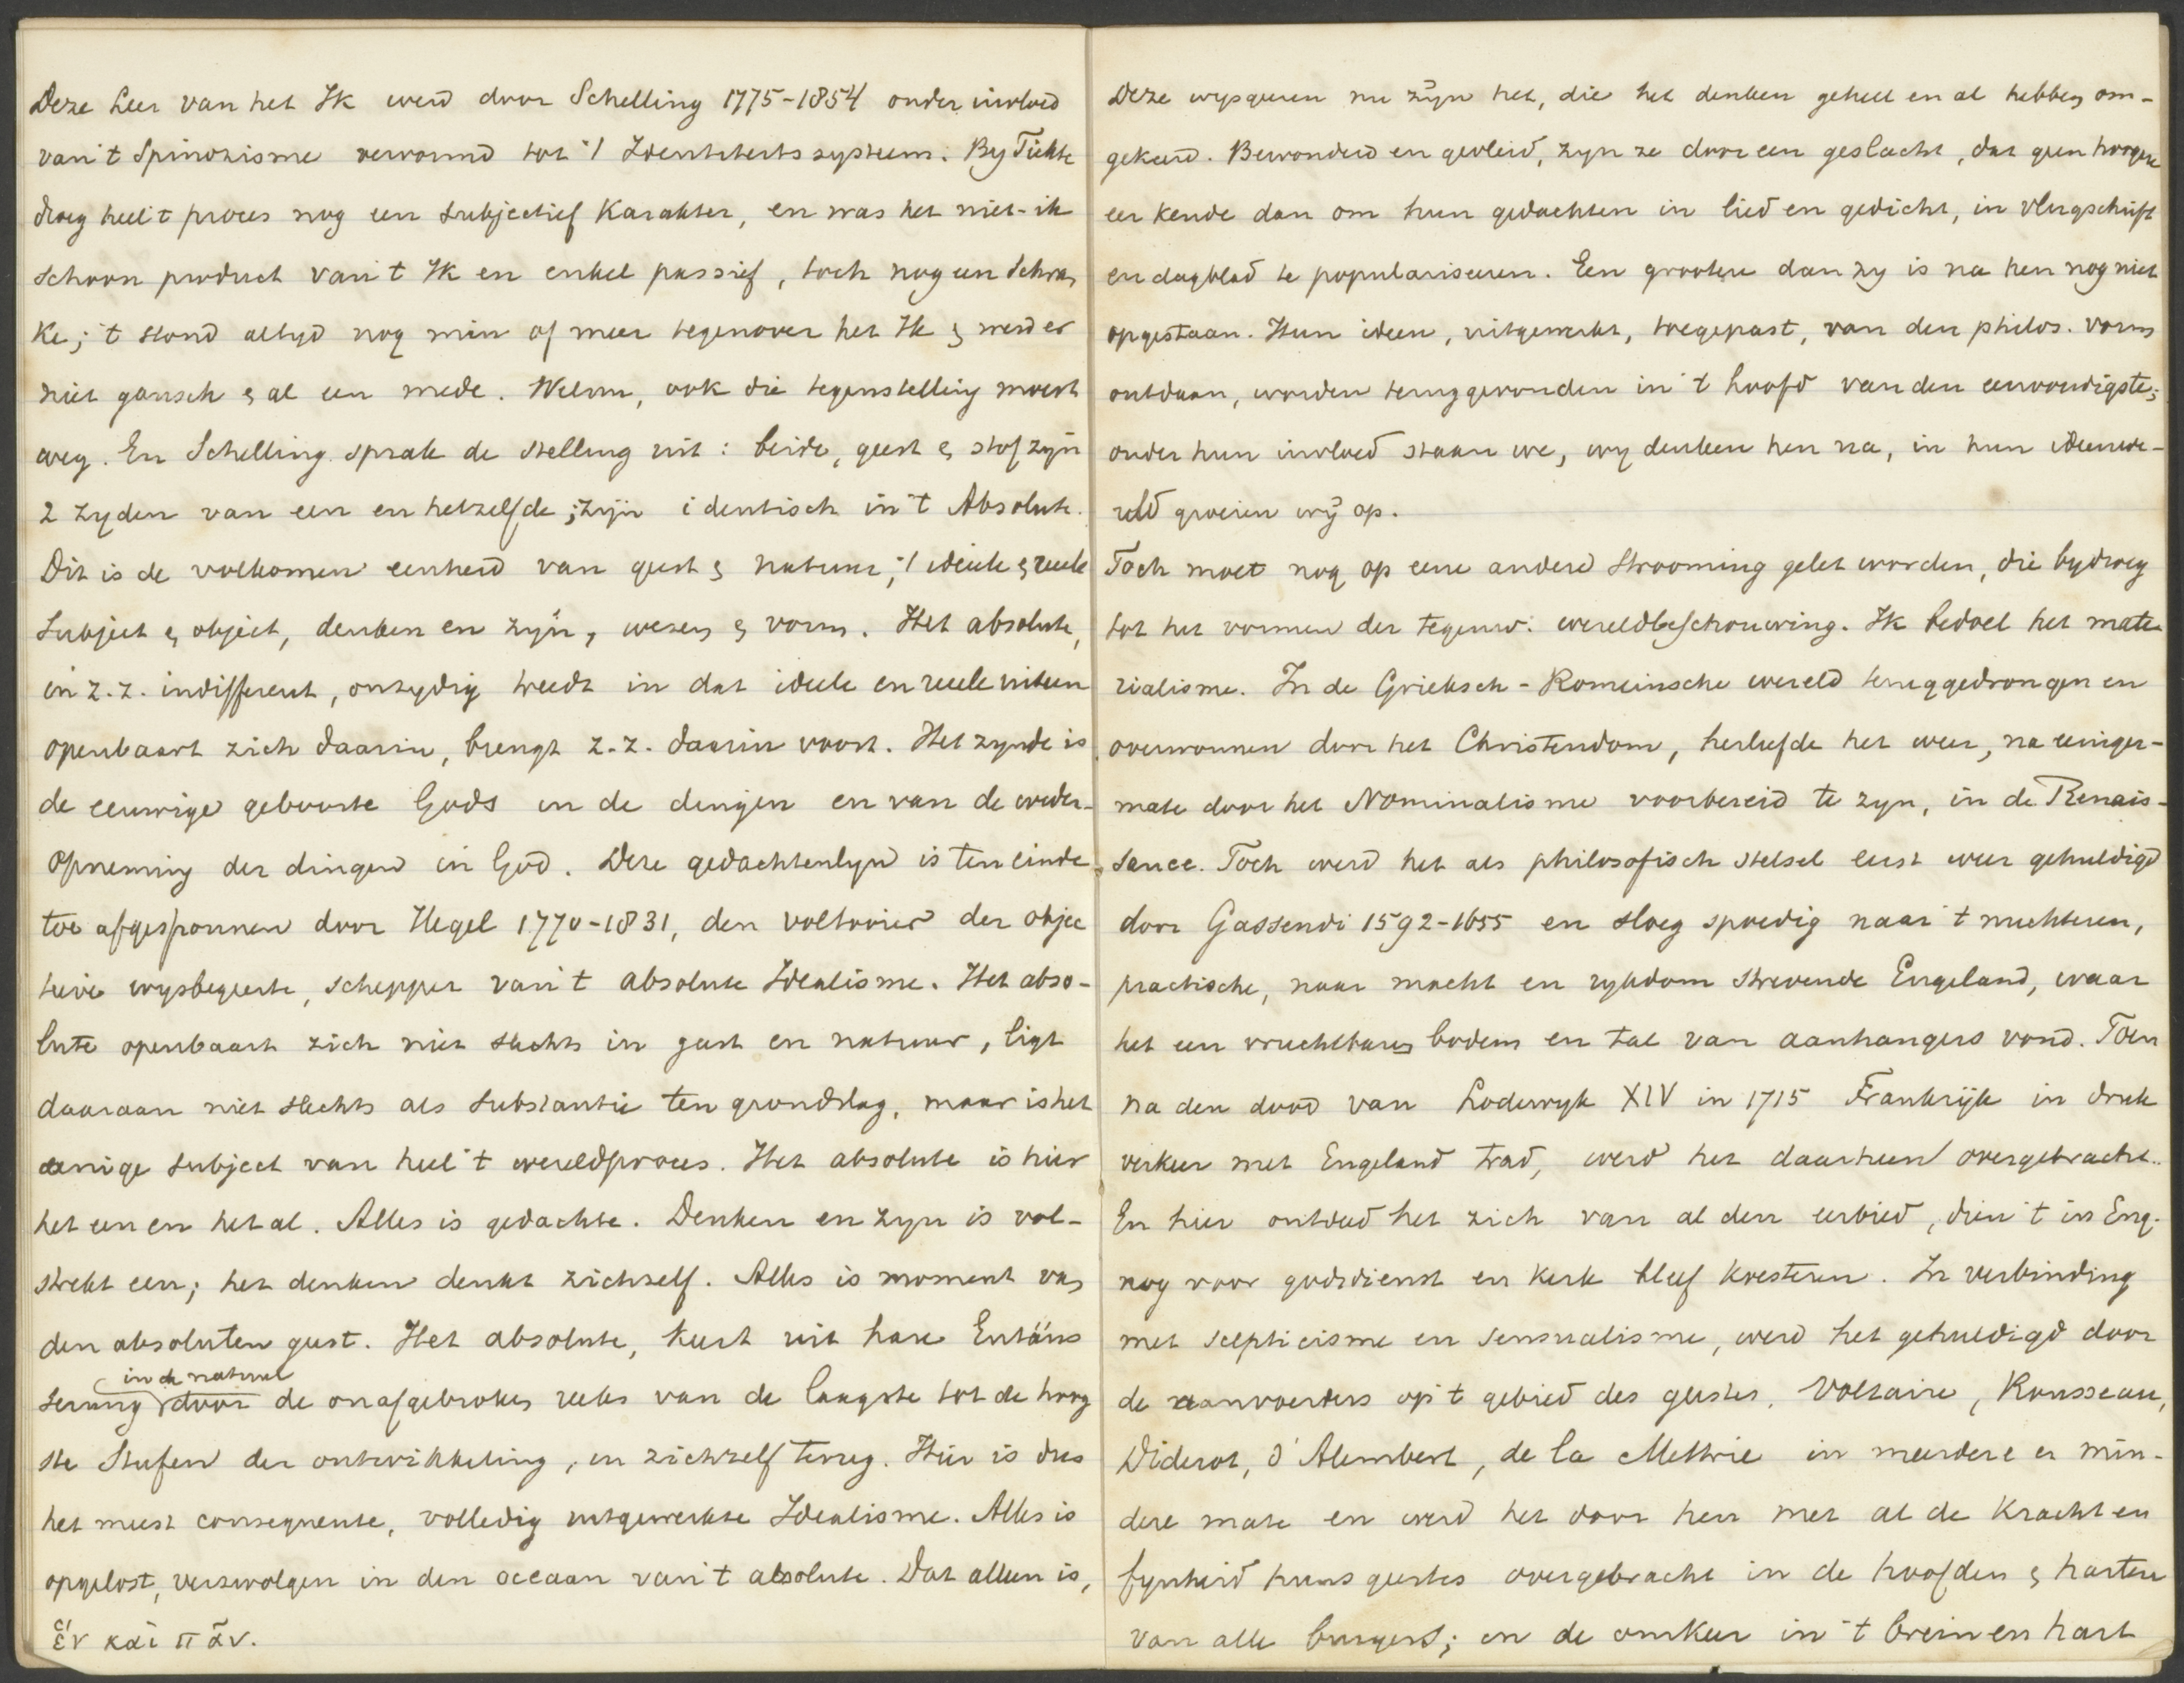 Deze Leer van het Ik werd door Schelling 1775-1854 onder invloed
van 't Spinozisme vervormd tot 't Identiteitssysteem. By Fichte
droeg heel 't proces nog een subjectief Karakter, en was het niet-ik
schoon product van 't Ik en enkel passief, toch nog een Schran
ke; 't stond altyd nog min of meer tegenover het Ik & werd er
niet gansch & al een mede. Welnu, ook die tegenstelling moest
weg. En Schelling sprak de stelling uit: beide, geest & stof zijn
2 zyden van een en hetzelfde; zijn identisch in 't Absolute.
Dit is de volkomen eenheid van geest & natuur, 't ideele & reele
Subject & object, denken en zijn, wezen & vorm. Het absolute,
in z.z. indifferent, onzydig treedt in dat ideele en reele uiteen
openbaart zich daarin, brengt z.z. daarin voort. Het zynde is
de eeuwige geboorte Gods in de dingen en van de weder-
opneming der dingen in God. Deze gedachtenlyn is ten einde
toe afgesponnen door Hegel 1770-1831, den voltooier der objec
tieve wysbegeerte, schepper van 't absolute Idealisme. Het abso-
lute openbaart zich niet slechts in geest en natuur, ligt
daaraan niet slechts als substantie ten grondslag, maar is het
eenige subject van heel 't wereldproces. Het absolute is hier
het een en het al. Alles is gedachte. Denken en zyn is vol-
strekt een; het denken denkt zichzelf. Alles is moment van
den absoluten geest. Het absolute, keert uit hare Entäus
serung in de natuur door de onafgebroken reeks van de laagste tot de hoog
ste Stufen der ontwikkeling, in zichzelf terug. Hier is dus
het meest consequente, volledig uitgewerkte Idealisme. Alles is
opgelost, verzwolgen in den oceaan van 't absolute. Dat alleen is,
ἕν καὶ πᾶν.
Deze wysgeeren nu zijn het, die het denken geheel en al hebben om-
gekeerd. Bewonderd en gevleid, zyn ze door een geslacht, dat geen hoogere
eer kende dan om hun gedachten in lied en gedicht, in vlugschrift
en dagblad te populariseeren. Een grootere dan zy is na hen nog niet
opgestaan. Hun ideen, uitgewerkt, toegepast, van den philos. vorm
ontdaan, worden teruggevonden in 't hoofd van den eenvoudigste;
onder hun invloed staan we, wy denken hen na, in hun ideenwe-
reld groeien wij op.
Toch moet nog op eene andere Strooming gelet worden, die bydroeg
tot het vormen der tegenw. wereldbeschouwing. Ik bedoel het mate
rialisme. In de Grieksch-Romeinsche wereld teruggedrongen en
overwonnen door het Christendom, herleefde het weer, na eeniger-
mate door het Nominalisme voorbereid te zyn, in de Renais-
sance. Toch werd het als philosofisch stelsel eerst weer gehuldigd
door Gassendi 1592-1655 en sloeg spoedig naar 't nuchteren,
practische, naar macht en rykdom strevende Engeland, waar
het een vruchtbaren bodem en tal van aanhangers vond. Toen
na den dood van Lodewyk XIV in 1715 Frankrijk in druk
verkeer met Engeland trad, werd het daarheen overgebracht.
En hier ontdeed het zich van al den eerbied, dien 't in Eng.
nog voor godsdienst en kerk bleef koesteren. In verbinding
met scepticisme en sensualisme, werd het gehuldigd door
de aanvoerders op 't gebied des geestes, Voltaire, Rousseau,
Diderot, d'Alembert, de la Mettrie in meerdere en min-
dere mate en werd het door hen met al de kracht en
fynheid huns geestes overgebracht in de hoofden & harten
van alle burgers; en de omkeer in 't brein en hart